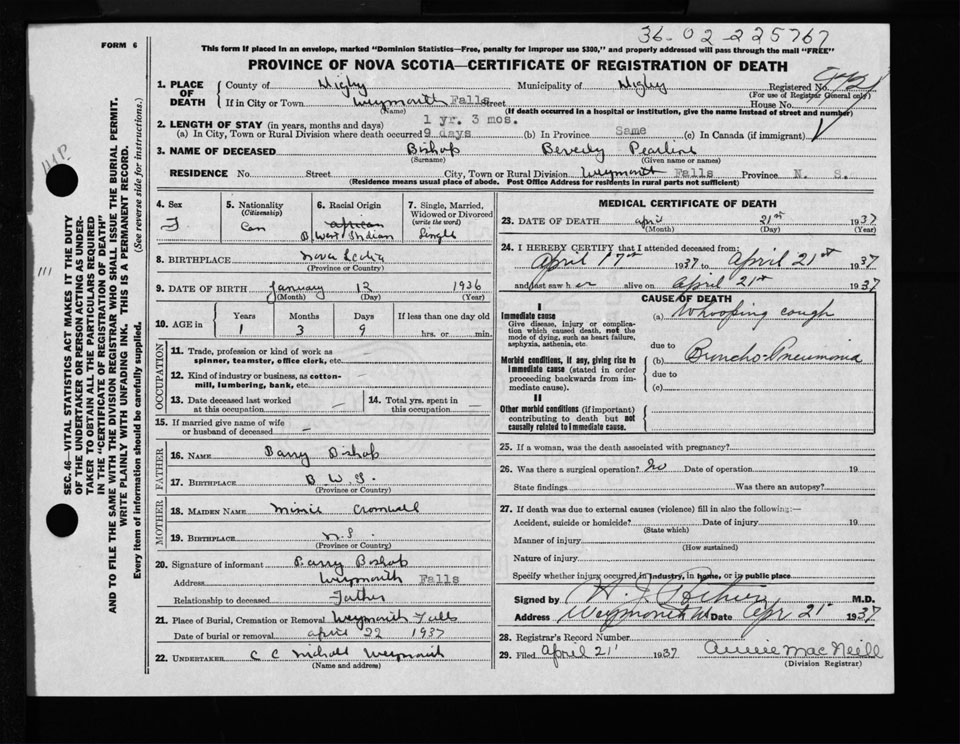 36-02-225767
FORM 6
This form if placed in an envelope, marked "Dominion Statistics—Free, penalty for improper use $300," and properly addressed will pass through the mail "FREE"
PROVINCE OF NOVA SCOTIA—CERTIFICATE OF REGISTRATION OF DEATH
SEC. 46—VITAL STATISTICS ACT MAKES IT THE DUTY
OF THE UNDERTAKER OR PERSON ACTING AS UNDER-
TAKER TO OBTAIN ALL THE PARTICULARS REQUIRED
IN THE "CERTIFICATE OF REGISTRATION OF DEATH"
AND TO FILE THE SAME WITH THE DIVISION REGISTRAR WHO SHALL ISSUE THE BURIAL PERMIT.
WRITE PLAINLY WITH UNFADING INK. THIS IS A PERMANENT RECORD.
Every item of information should be carefully supplied. (See reverse side for instructions.)
1. PLACE OF DEATH County of Digby Municipality of Digby Registered No.
(For use of Registrar General only)
If in City or Town Weymouth Falls Street House No.
(Name) (If death occurred in a hospital or institution, give the name instead of street and number)
2. LENGTH OF STAY (in years, months and days) 1 yr. 3 mos.
(a) In City, Town or Rural Division where death occurred 9 days (b) In Province Same (c) In Canada (if immigrant)
3. NAME OF DECEASED Bishop Beverly Pearline
(Surname) (Given name or names)
RESIDENCE No. Street City, Town or Rural Division Weymouth Falls Province N. S.
(Residence means usual place of abode. Post Office Address for residents in rural parts not sufficient)
4. Sex F
5. Nationality (Citizenship) Can
6. Racial Origin African B West Indian
7. Single, Married, Widowed or Divorced (write the word) Single
8. BIRTHPLACE Nova Scotia
(Province or Country)
9. DATE OF BIRTH January 12 1936
(Month) (Day) (Year)
10. AGE in Years Months Days If less than one day old
1 3 9 hrs. or min.
OCCUPATION
11. Trade, profession or kind of work as
spinner, teamster, office clerk, etc.
12. Kind of industry or business, as cotton-
mill, lumbering, bank, etc.
13. Date deceased last worked at this occupation –
14. Total yrs. spent in this occupation –
15. If married give name of wife
or husband of deceased –
FATHER
16. NAME Parry Bishop
17. BIRTHPLACE B W I
(Province or Country)
MOTHER
18. MAIDEN NAME Minnie Cromwell
19. BIRTHPLACE N S
(Province or Country)
20. Signature of informant Parry Bishop
Address Weymouth Falls
Relationship to deceased Father
21. Place of Burial, Cremation or Removal Weymouth Falls
Date of burial or removal April 22 1937
22. UNDERTAKER C C Nichols Weymouth
(Name and address)
MEDICAL CERTIFICATE OF DEATH
23. DATE OF DEATH April 21st 1937
(Month) (Day) (Year)
24. I HEREBY CERTIFY that I attended deceased from:
April 17th 1937 to April 21st 1937
and last saw her alive on April 21st 1937
CAUSE OF DEATH
I
Immediate cause (a) Whooping cough
Give disease, injury or complica-
tion which caused death, not the
mode of dying, such as heart failure,
asphyxia, asthenia, etc.
due to
Morbid conditions, if any, giving rise to (b) Broncho-Pneumonia
immediate cause (stated in order
proceeding backwards from im-
mediate cause).
due to
(c)
II
Other morbid conditions (if important)
contributing to death but not
causally related to immediate cause.
25. If a woman, was the death associated with pregnancy?
26. Was there a surgical operation? No Date of operation 19
State findings Was there an autopsy?
27. If death was due to external causes (violence) fill in also the following:—
Accident, suicide or homicide? Date of injury 19
(State which)
Manner of injury
(How sustained)
Nature of injury
Specify whether injury occurred in industry, in home, or in public place
Signed by M.D.
Address Weymouth NS Date Apr 21st 1937
28. Registrar's Record Number
29. Filed April 21 1937 Annie MacNeill
(Division Registrar)